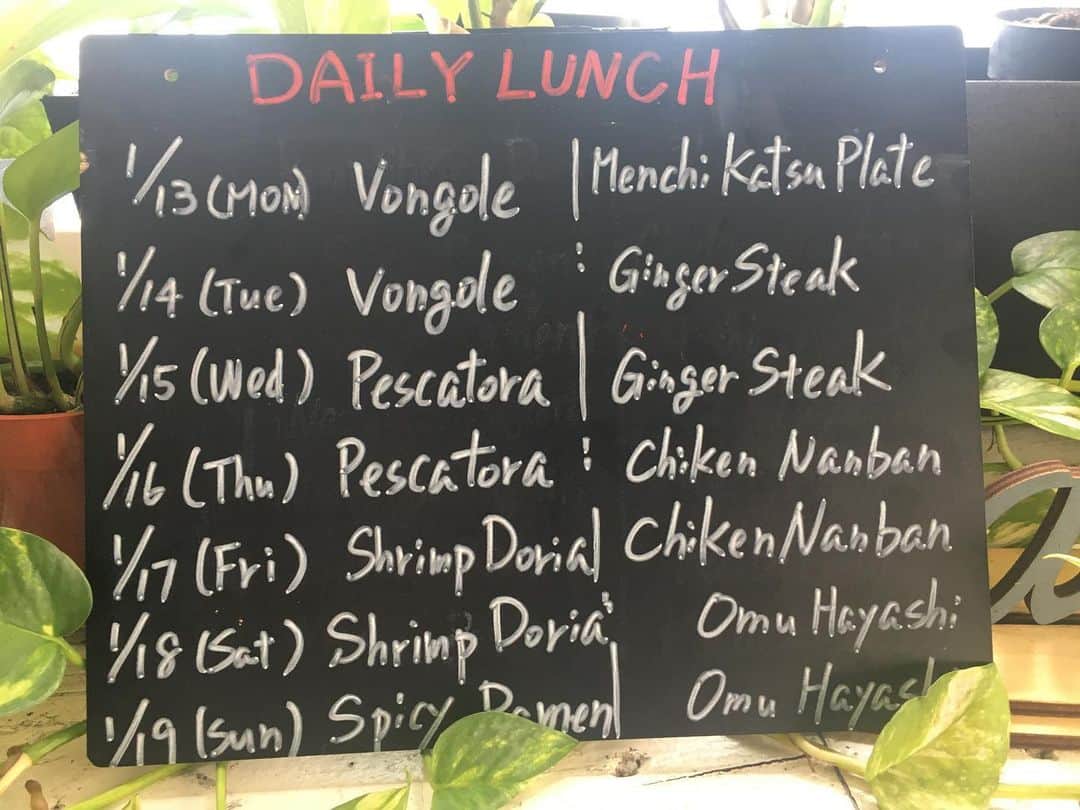 DAILY LUNCH
1/13 (MON) Vongole | Menchi Katsu Plate
1/14 (Tue) Vongole : Ginger Steak
1/15 (Wed) Pescatora | Ginger Steak
1/16 (Thu) Pescatora : Chiken Nanban
1/17 (Fri) Shrimp Doria | Chiken Nanban
1/18 (Sat) Shrimp Doria : Omu Hayashi
1/19 (Sun) Spicy Ramen | Omu Hayashi